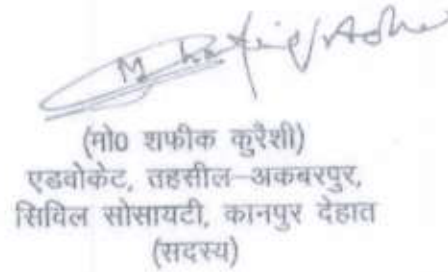 (मो0 शफीक कुरैशी)
एडवोकेट, तहसील-अकबरपुर,
सिविल सोसायटी, कानपुर देहात
(सदस्य)